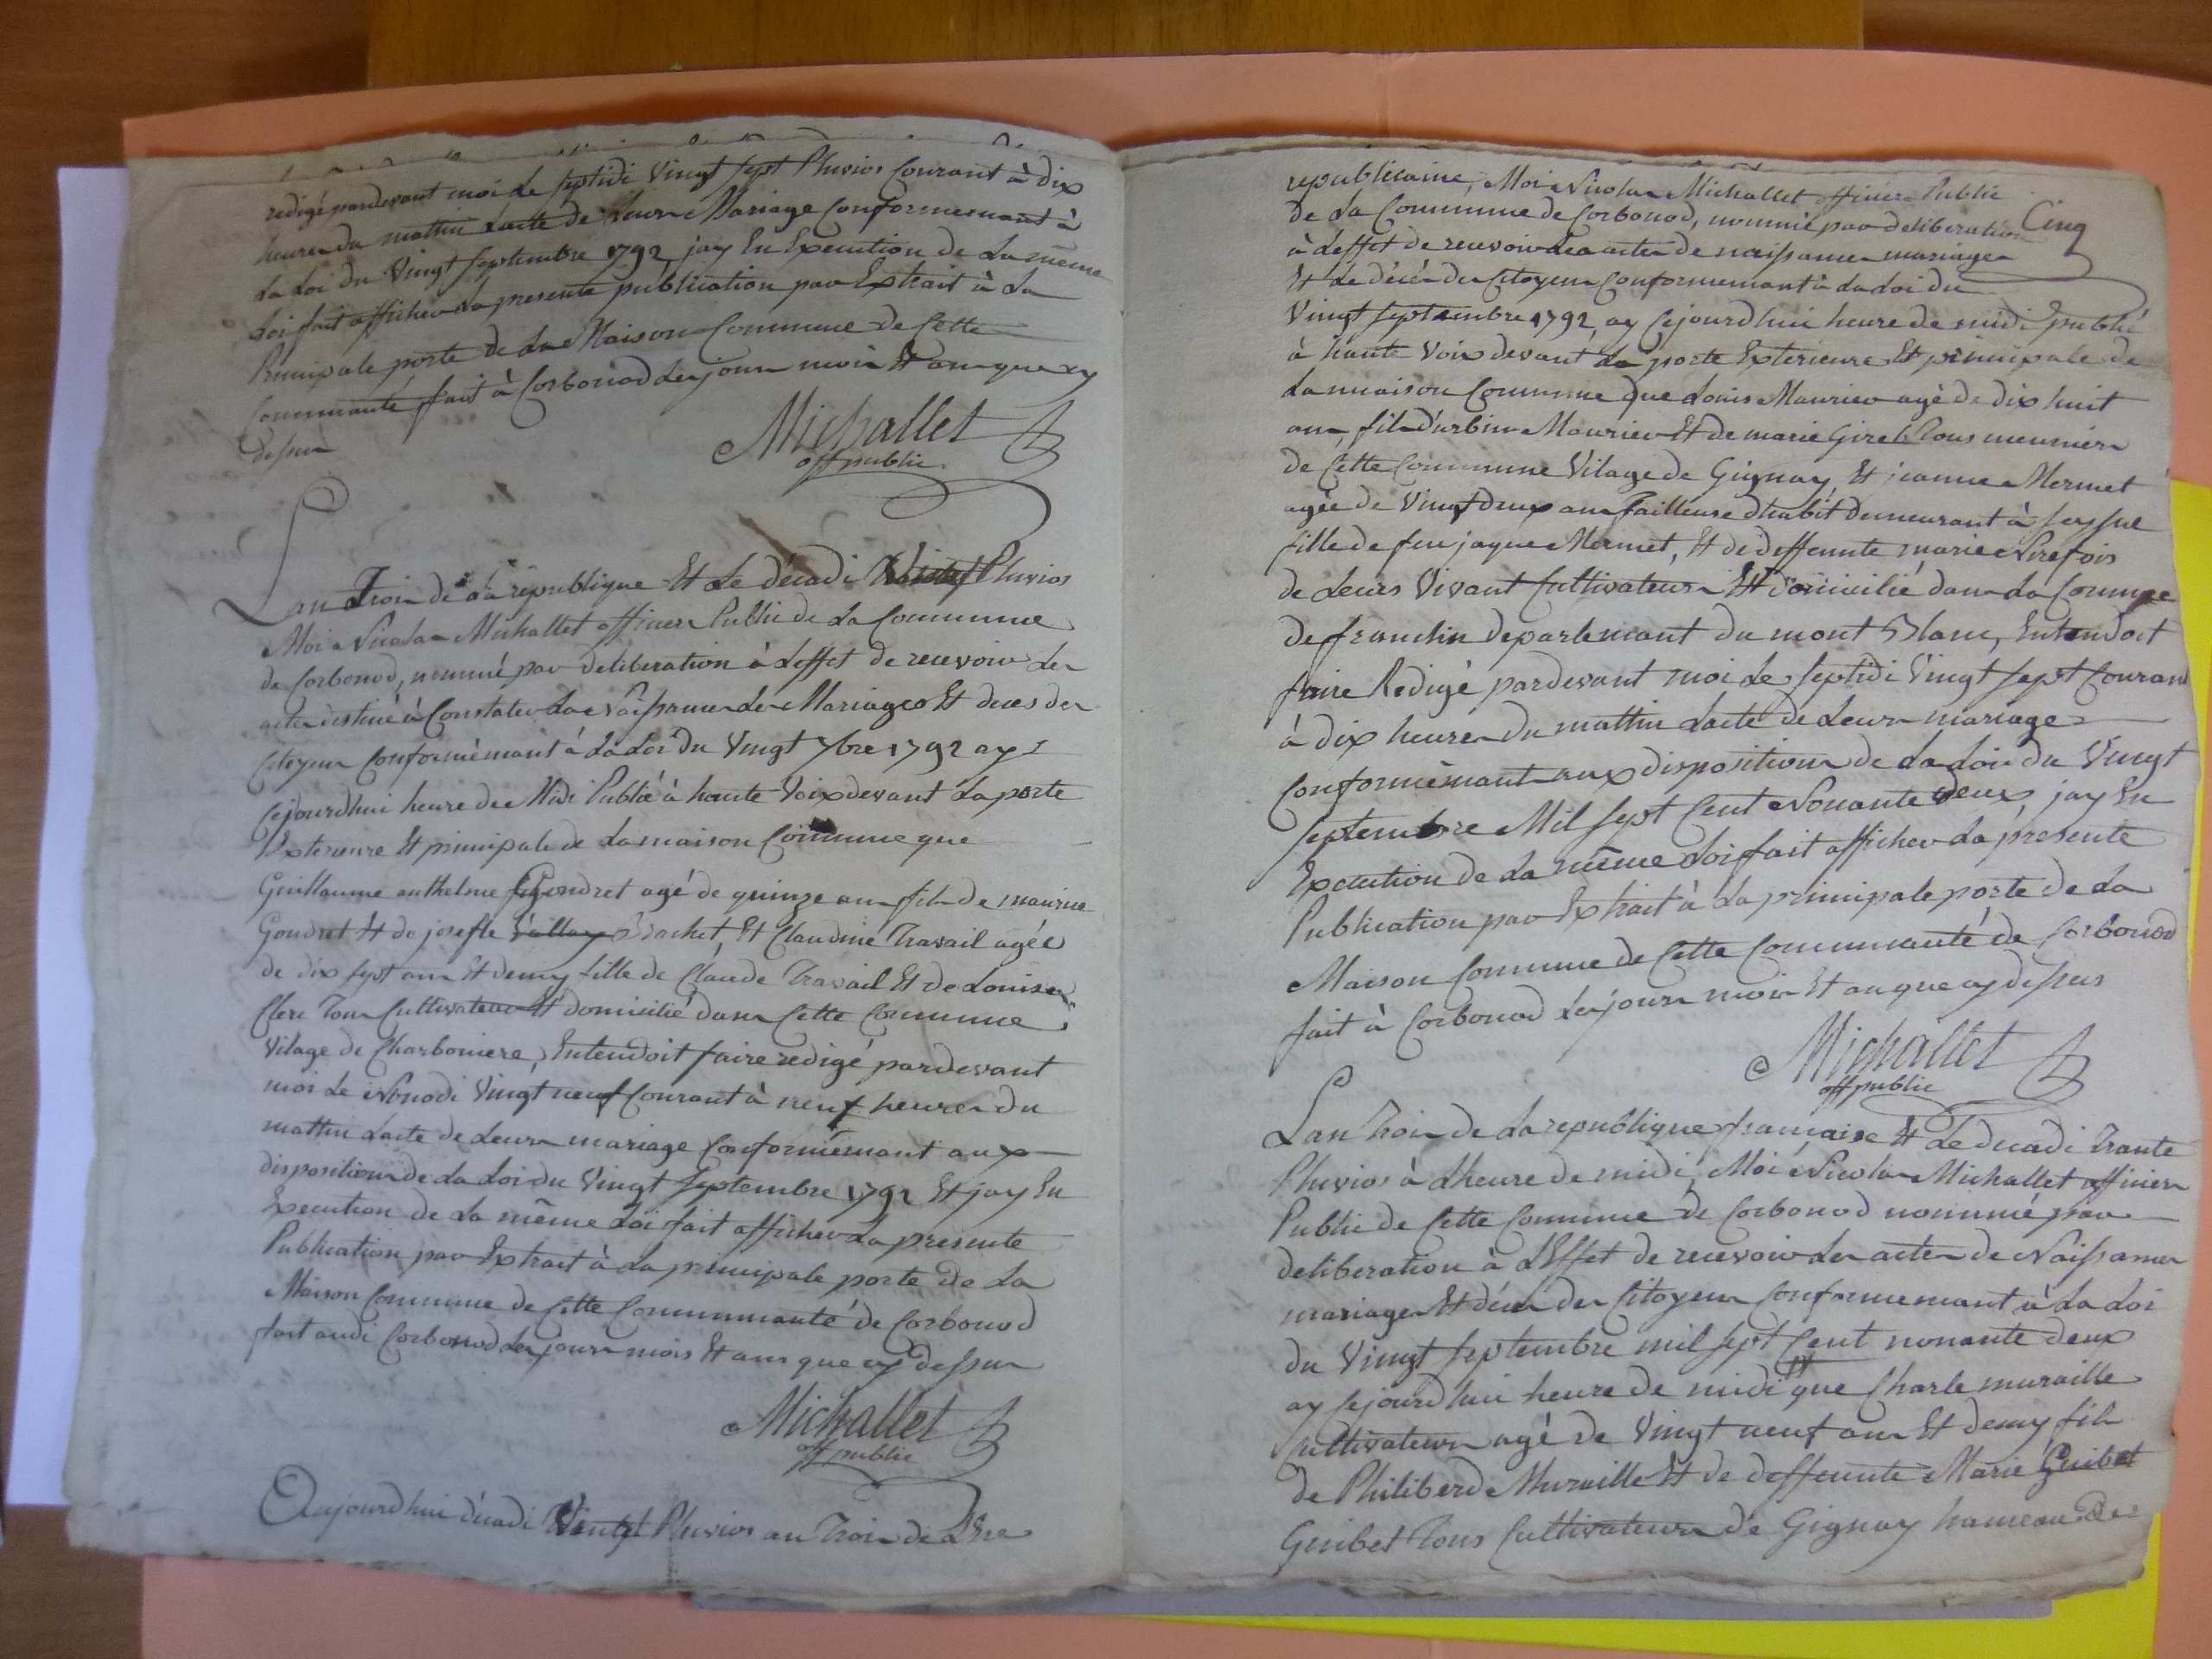 redigé pardevant moi le septidi Vingt sept Pluvios Courant à dix
heures du mattin Lacte de Leurs Mariage Conformemant à
La Loi du Vingt septembre 1792, jay En Execution de La même
Loi fait afficher La presente publication par Extrait à La
Principale porte de La Maison Commune de Cette
Communauté fait à Corbonod Les jours mois Et an que cy
dessus
Michallet
off public
Lan Trois de La republique Et Le décadi Pluvios
Moi Nicolas Michallet officier Public de La Commune
de Corbonod, nommé par deliberation à Leffet de recevoir Les
actes destiné à Constater La Naissances des Mariages Et deces des
Citoyens Conformèmant à La Loi du Vingt 7bre 1792 ay
Cejourdhui heure de Midi Publié à haute Voix devant La porte
Exterieure Et principale de La maison Commune que
Guillaume anthelme Gondret agé de quinze ans fils de maurice
Gondret Et de josefte Brachet, Et Claudine Travail agée
de dix sept ans Et demy fille de Claude Travail Et de Louise
Clerc Tous Cultivateurs Et domicilié dans Cette Commune
Vilage de Charboniere, Entendoit faire redigé pardevant
moi Le Nonodi Vingt neuf Courant à neuf heures du
mattin Lacte de Leurs mariage Conformèmant aux
disposition de La Loi du Vingt Septembre 1792 Et jay En
Execution de La même Loi fait afficher La presente
Publication par Extrait à La principale porte de La
Maison Commune de Cette Communauté de Corbonod
fait audi Corbonod Les jours mois Et ans que cy dessus
Michallet
off public
Aujourdhui décadi Pluvios an Trois de Lere
republicaine, Moi Nicolas Michallet officier Public
de La Commune de Corbonod, nommé par deliberation
Cinq
à Leffet de recevoir Les actes de naissances mariages
Et de décès des Citoyens Conformemant à La Loi du
Vingt septembre 1792, ay Cejourdhui heure de midi publié
à haute Voix devant La porte Exterieure Et principale de
La maison Commune que Louis Maurier agé de dix huit
ans, fils durbin Maurier Et de marie Girel Tous meuniers
de Cette Commune Vilage de Gignay, Et jeanne Mermet
agée de Vingt deux ans Tailleuse dhabit demeurant à Seyssel
fille de feu jaque Mermet, Et de deffeunte marie
de Leurs Vivant Cultivateurs Et domicilié dans La Commune
de franclin departemant du mont Blanc, Entendoit
faire Redigé pardevant moi Le septidi Vingt sept Courant
à dix heures du mattin Lacte de Leurs mariage
Conformèmant aux disposition de La Loi du Vingt
septembre Mil sept Cent Nonante deux, jay En
Execution de La même Loi fait afficher La presente
Publication par Extrait à La principale porte de La
Maison Commune de Cette Communauté de Corbonod
fait à Corbonod Les jours mois Et an que cy dessus
Michallet
off public
Lan Trois de La republique française Et Le decadi Trante
Pluvios à Lheure de midi, Moi Nicolas Michallet officier
Public de Cette Commune de Corbonod nommé par
deliberation à LEffet de recevoir Les actes de Naissances
mariages Et décès des Citoyens Conformemant à La Loi
du Vingt septembre mil sept Cent nonante deux
ay Cejourdhui heure de midi que Charle muraille
Cultivateur agé de Vingt neuf ans Et demy fils
de Philiberd Muraille Et de deffeunte Marie Guibet
Guibet Tous Cultivateurs de Gignay hameau de